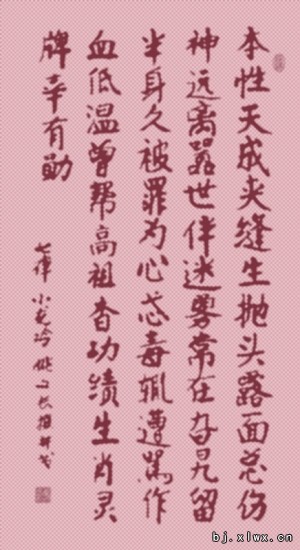 本性天成夹缝生抛头露面总伤
神远离嚣世伴迷雾常在旮旯留
半身久被罪为心忒毒辄遭骂作
血低温曾帮高祖查功绩生肖灵
牌幸有勋
七律 小龙吟
bj.xlwx.cn